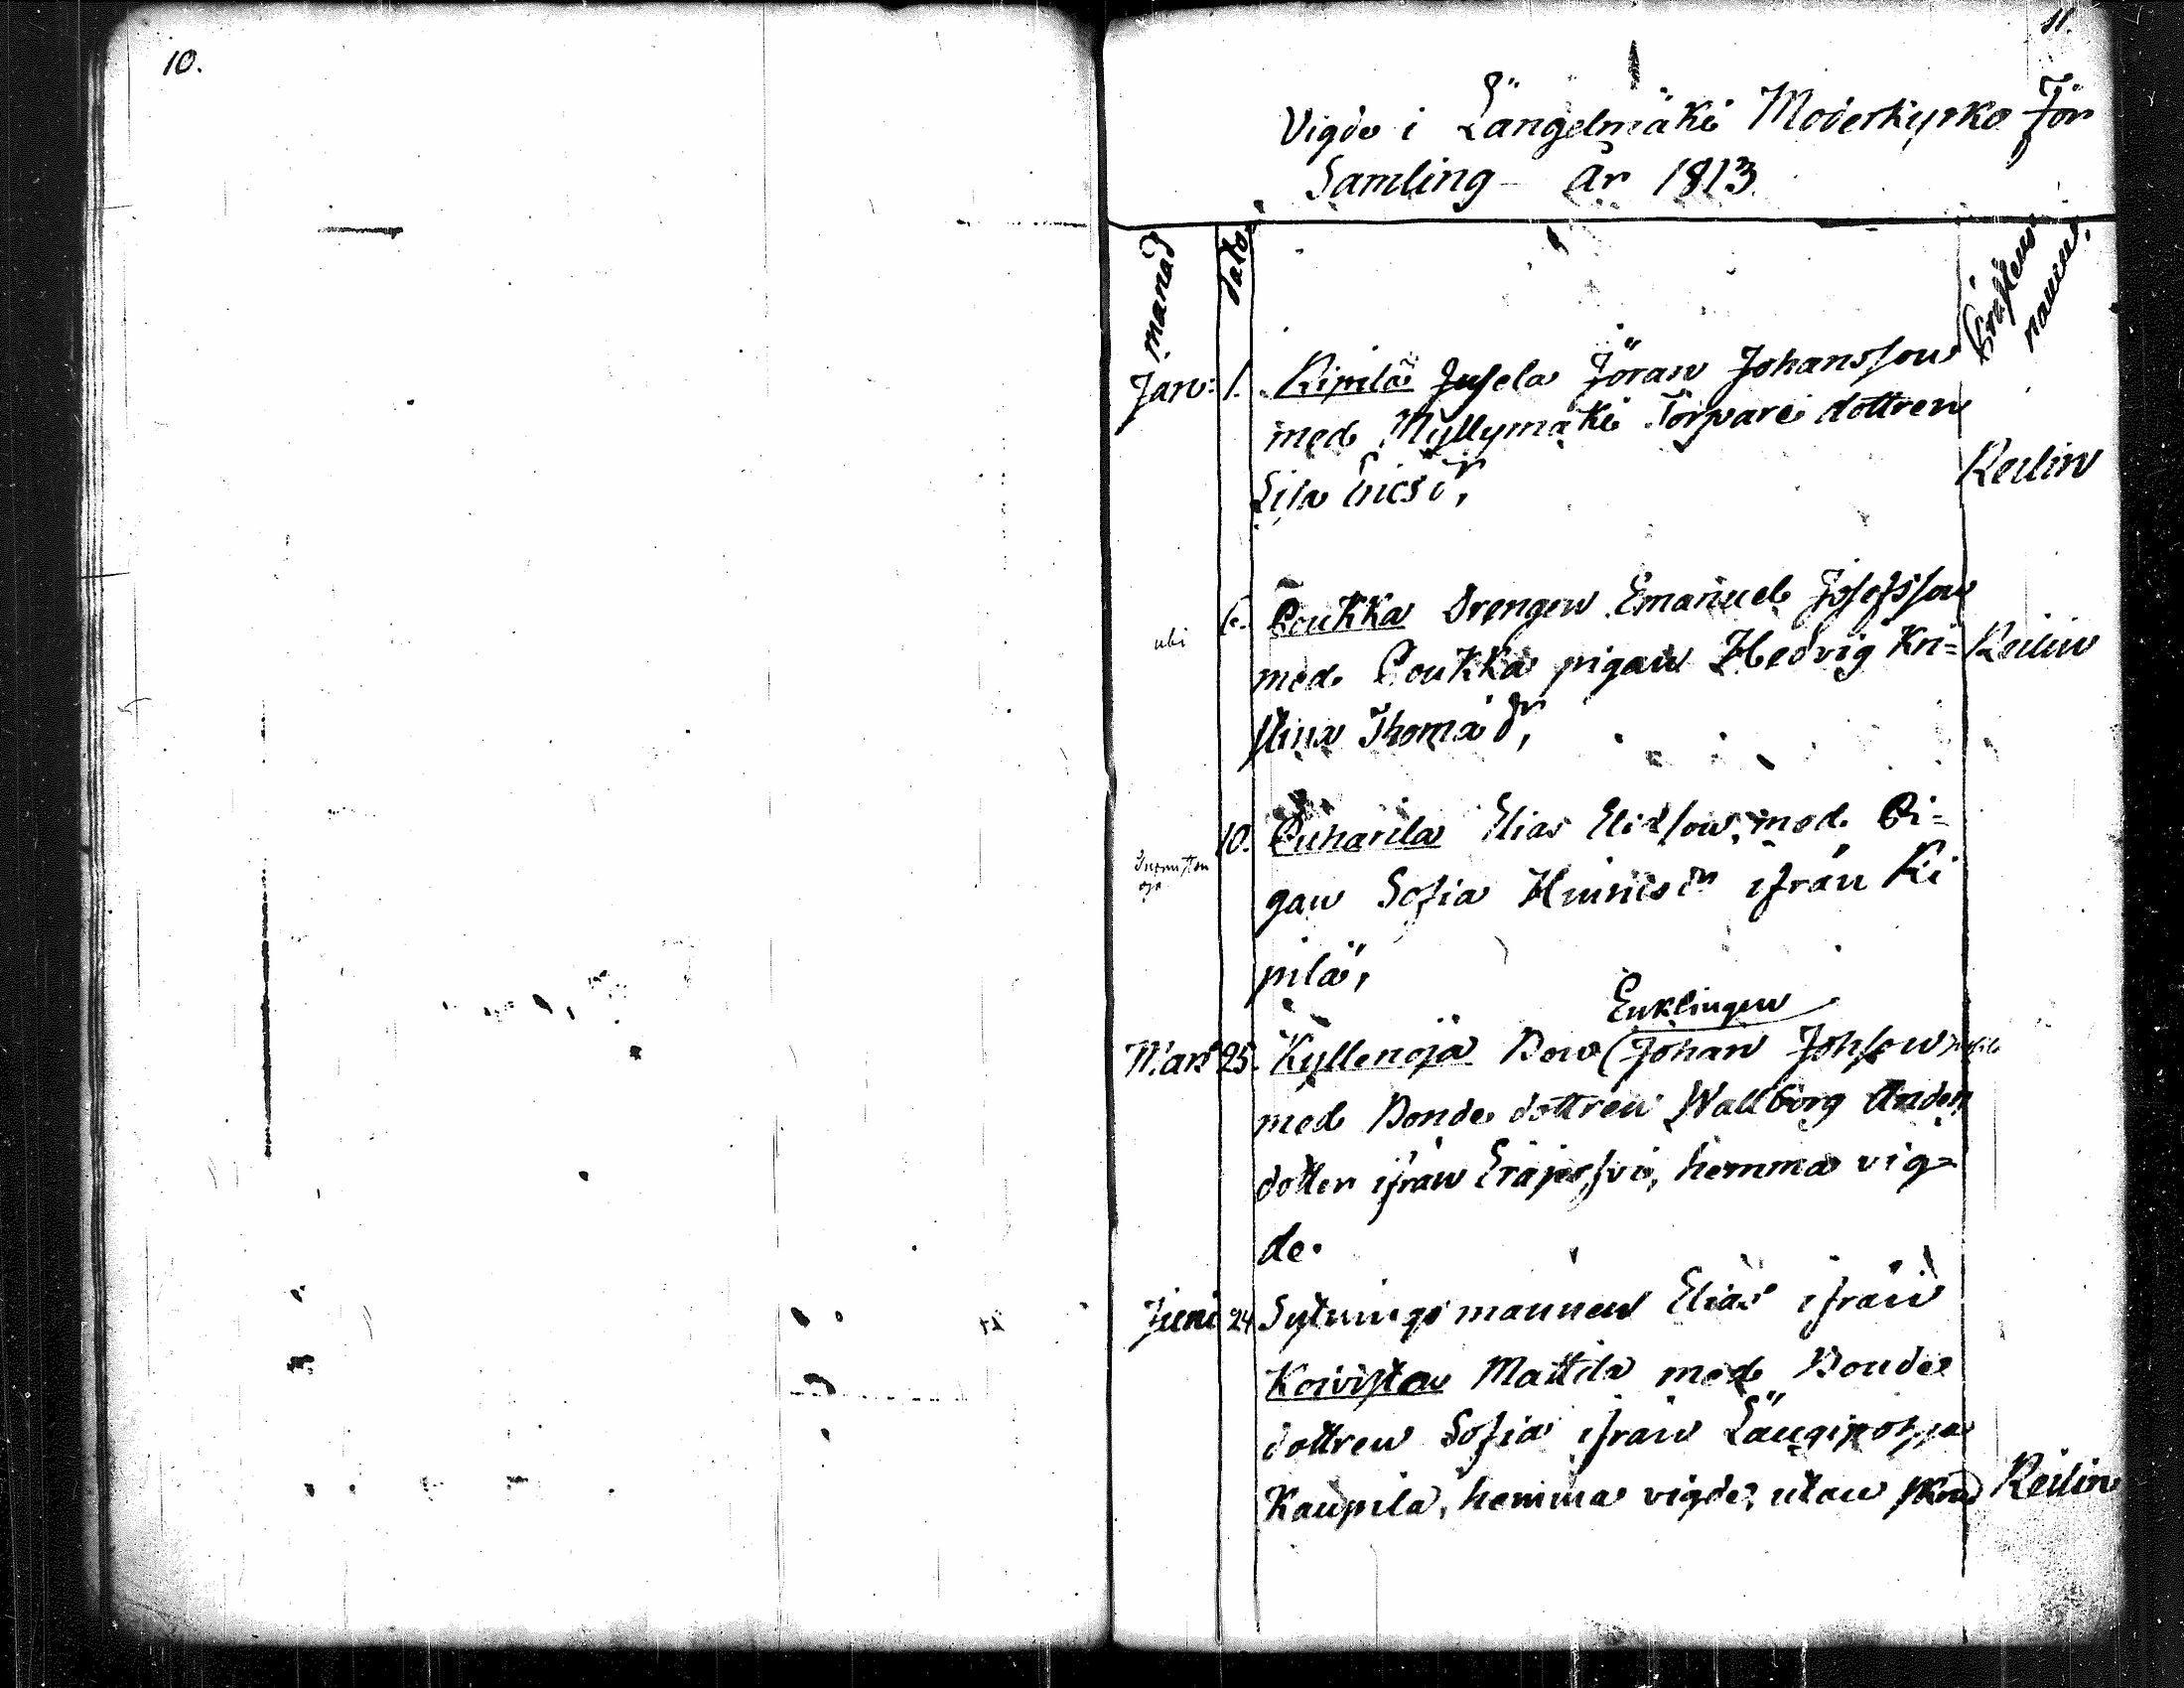 10.
11.
Vigde i Längelmäki Moderkyrko För
Samling år 1813
månad
dato
Prestens
namn.
Jan: 1. Ripilä Jusela Jöran Johansson
med Myllymäki Torpare dottren
Lisa Ericsdr,
Reilin
6. Poukka Drengen Emanuel Josefsson
med Poukka pigan Hedvig Kri=
stina Thomädr,
Reilin
10. Puharila Elias Eliasson, med Pi=
gan Sofia Hinricsdr ifrån Ri
pilä,
Enklingen
Mars 25. Kyllenoja Johan Johsson
med Bonde dottren Wallborg Anders
dotter ifrån Eräjerfvi, hemma vig=
de.
Juni 24 Sytningsmannen Elias ifrån
Koiviston Mattila med Bonde
dottren Sofia ifrån Längipohja
Kaupila, hemma vigde, utan
Reilin